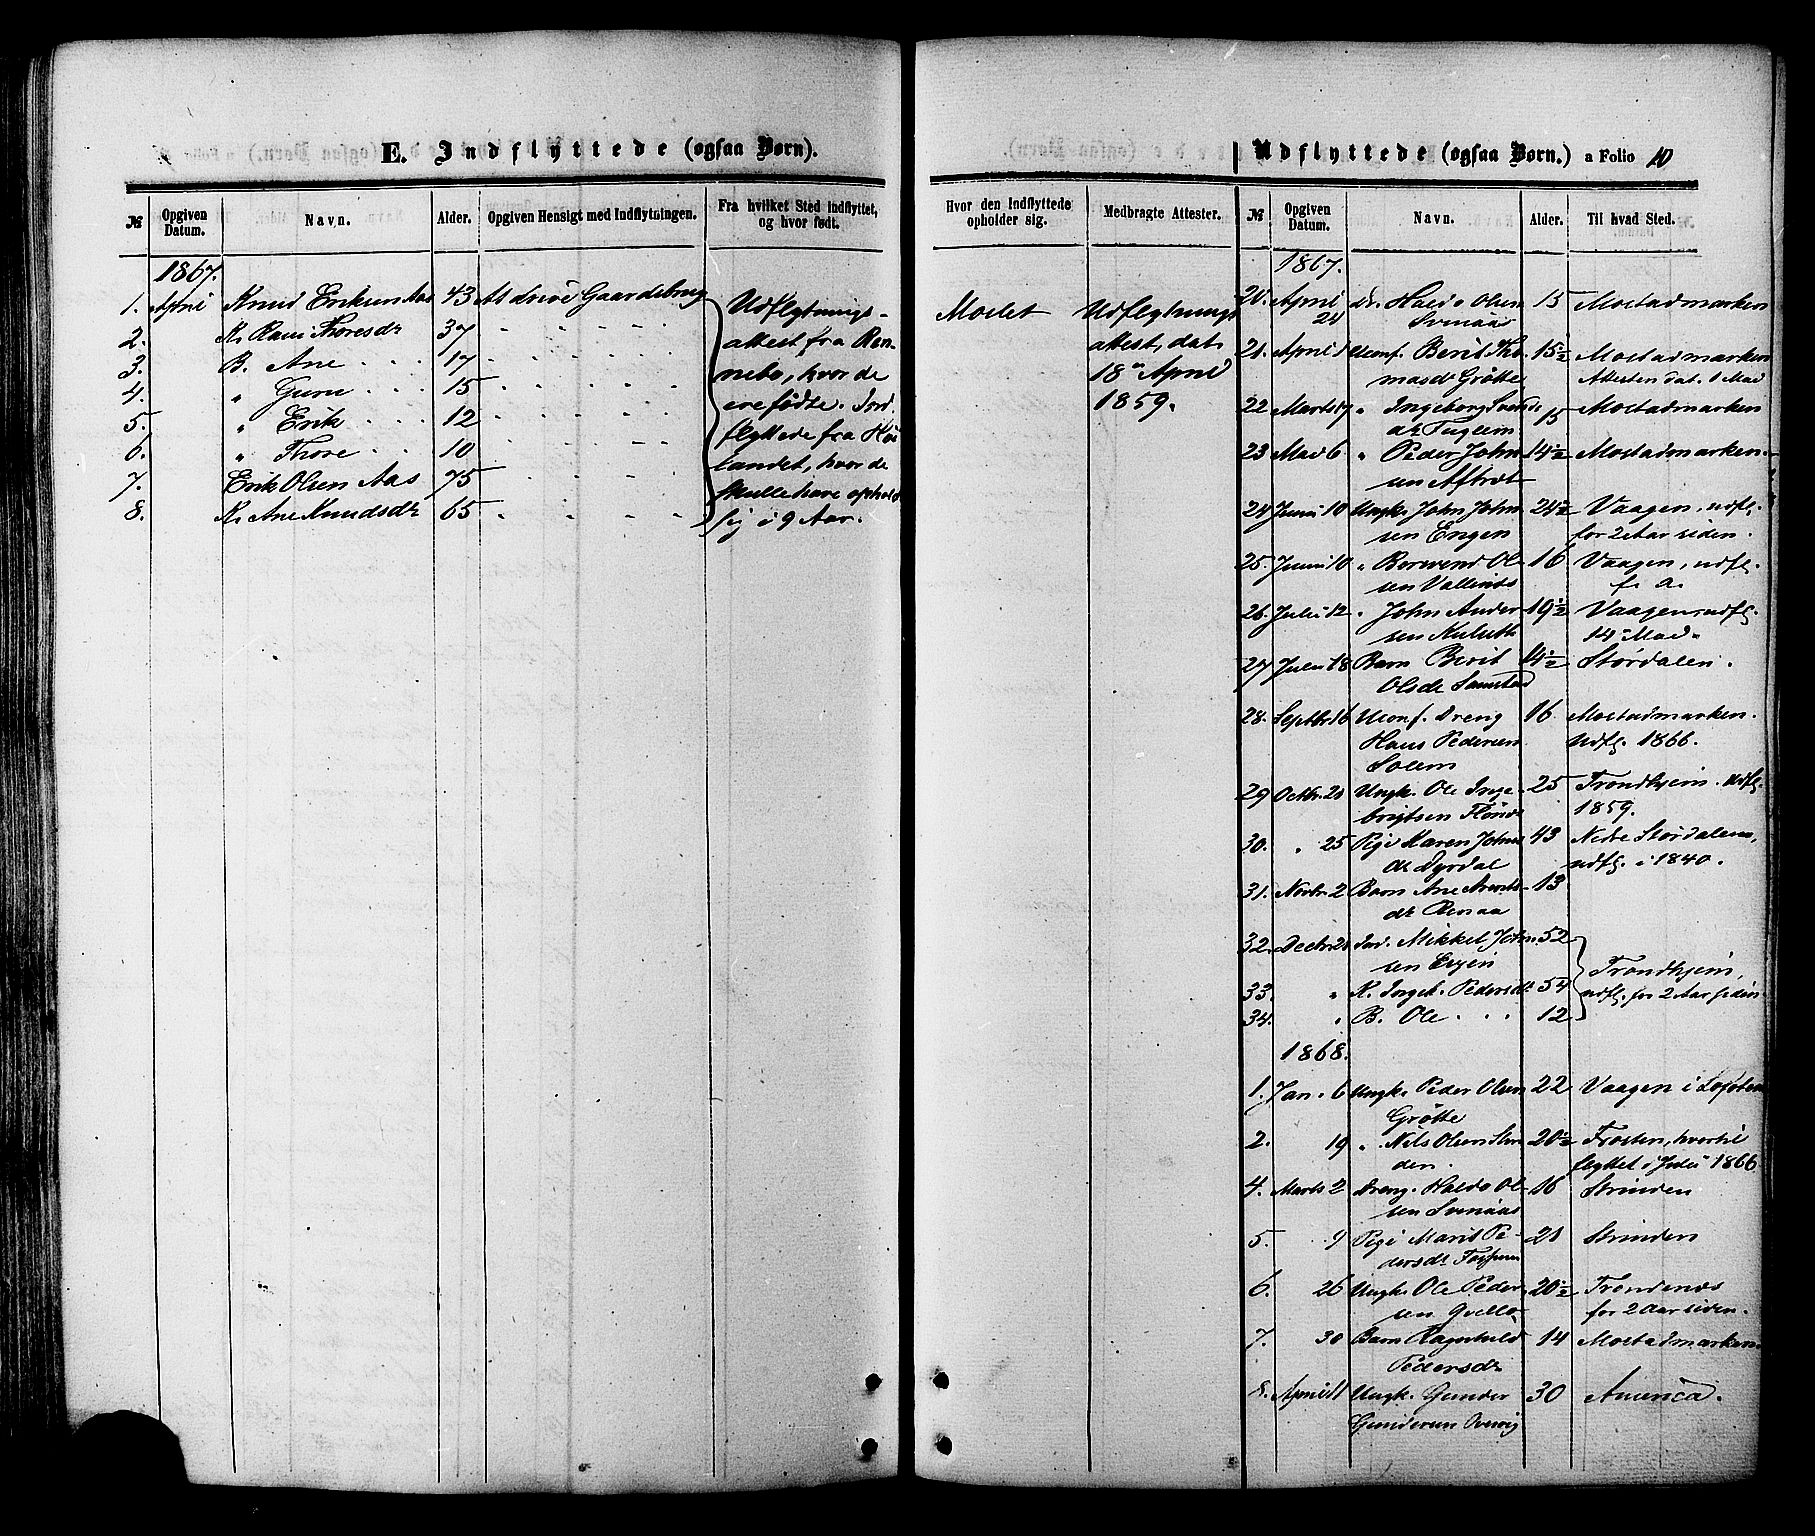 E. Indflyttede (ogsaa Børn).
№ Opgiven Datum. Navn. Alder. Opgiven Hensigt med Indflytningen. Fra hvilket Sted indflyttet, og hvor født.
1867.
1. April Knud Eriksen Aas 43 At drive Gaardsbrug
2. K. Thoresdr 37 " " " "
3. B. Ane " " 17 " " " "
4. " Guru " " 15 " " " "
5. " Erik " " 12 " " " "
6. " Thore " " 10 " " " "
7. Erik Olsen Aas 75 " " " "
8. K. Ane Knudsdr 65 " " " "
Udflytnings-
attest fra Ren-
nebo, hvor de
ere fødte. Ind-
flyttede fra
landet, hvor de
skulle have opholdt
sig i 9 Aar.
Hvor den Indflyttede opholder sig. Medbragte Attester.
Moslet
Udflytnings-
attest, dat.
18de April
1859.
Udflyttede (ogsaa Børn.) a Folio 10
№ Opgiven Datum. Navn. Alder. Til hvad Sted.
1867.
20. April 24 dr. Haldo Olsen 15 Mostadmarken
Svenaas
21. April 1 Uconf. Berit Tho- 15½ Mostadmarken
masdr Grøtte Attesten dat. 1 Mai
22 Marts 17 " Ingeborg Svends 15 Mostadmarken
dr Fuglem
23 Mai 6 " Peder John- 14½ Mostadmarken.
sen Aftret
24 Juni 10 Ungk. John John 24½ Vaagen, udfl.
sen Engen for 2 Aar siden.
25. Juni 10 " Ol- 16 Vaagen, udfl.
sen f. a.
26. Juli 12 " John Ander 19½ Vaagen, udfl.
sen Kulseth 14de Mai
27 Juli 18 Barn Berit 14½ Størdalen.
Olsdr
28. Septbr 16 Uconf. Dreng 16 Mostadmarken.
Hans Pedersen udfl. 1866.
Solem
29 Octbr. 21 Ungk. Ole Inge- 25 Trondhjem. udfl.
brigtsen Flønæs 1859.
30. " 25 Pige Maren Johns 43 Nedre Størdalen,
dr Dyrdal udfl. i 1840.
31. Novbr 2 Barn Ane Arnts- 13
dr Renaa
32. Decbr 21 Ind. Mikkel John 52
sen Evjen
33. " K. Ingeb. Pedersdr 54
34. " B. Ole " " 12
Trondhjem,
udfl. for 2 Aar siden.
1868.
1. Jan. 6 Ungk. Peder Olsen 22 Vaagen i Lofoten
Grøtte
2. 19 " Nils Olsen Stor 20½ Frosten, hvortil
den. flyttet i Juli 1866
4. Marts 2 Dreng. Haldo Ol- 16 Strinden
sen Svenaas
5. 9 Pige Marit Pe- 21 Strinden
dersdr
6. 26 Ungk. Ole Peder 20½ Trondenæs
sen Qvello for 2 Aar siden.
7. 30 Barn Ragnhild 14 Mostadmarken.
Pedersdr
8. April 1 Ungk. Gunder 30 America.
Gundersen Overvig